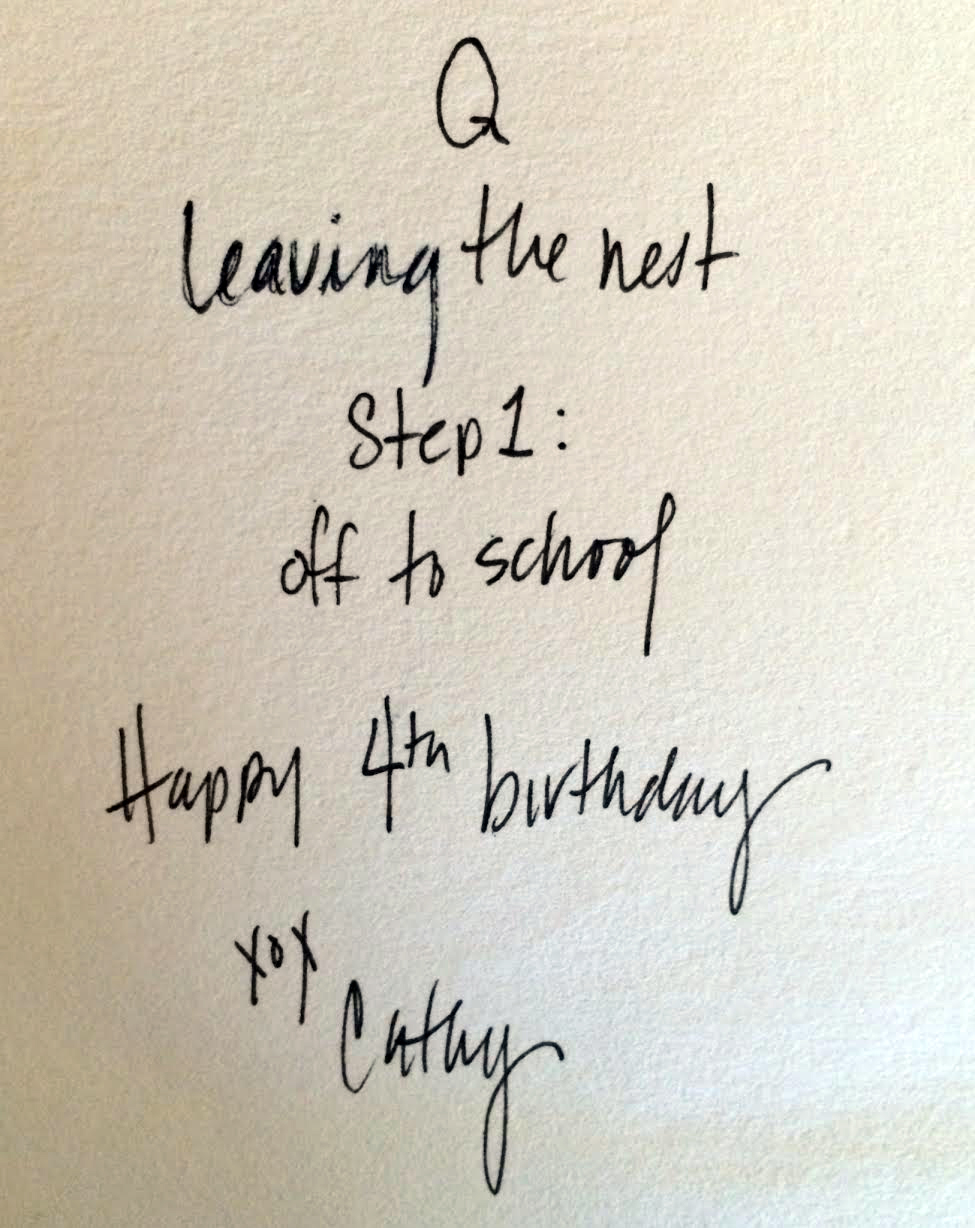 Q
leaving the nest
Step 1:
off to school
Happy 4th birthday
xox
Cathy